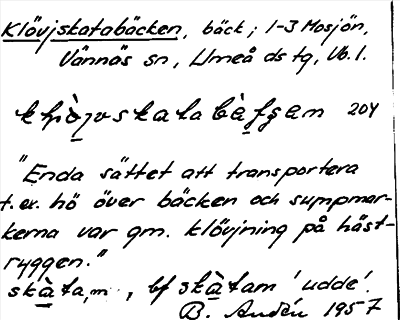 Klövjskatabäcken, bäck; 1-3 Mosjön,
Vännäs sn, Umeå ds tg, Vb. l.
204
"Enda sättet att transportera
t.ex. hö över bäcken och sumpmar-
kerna var gm. klövjning på häst-
ryggen."
bf skàtam 'udde'.
B. Andén 1957